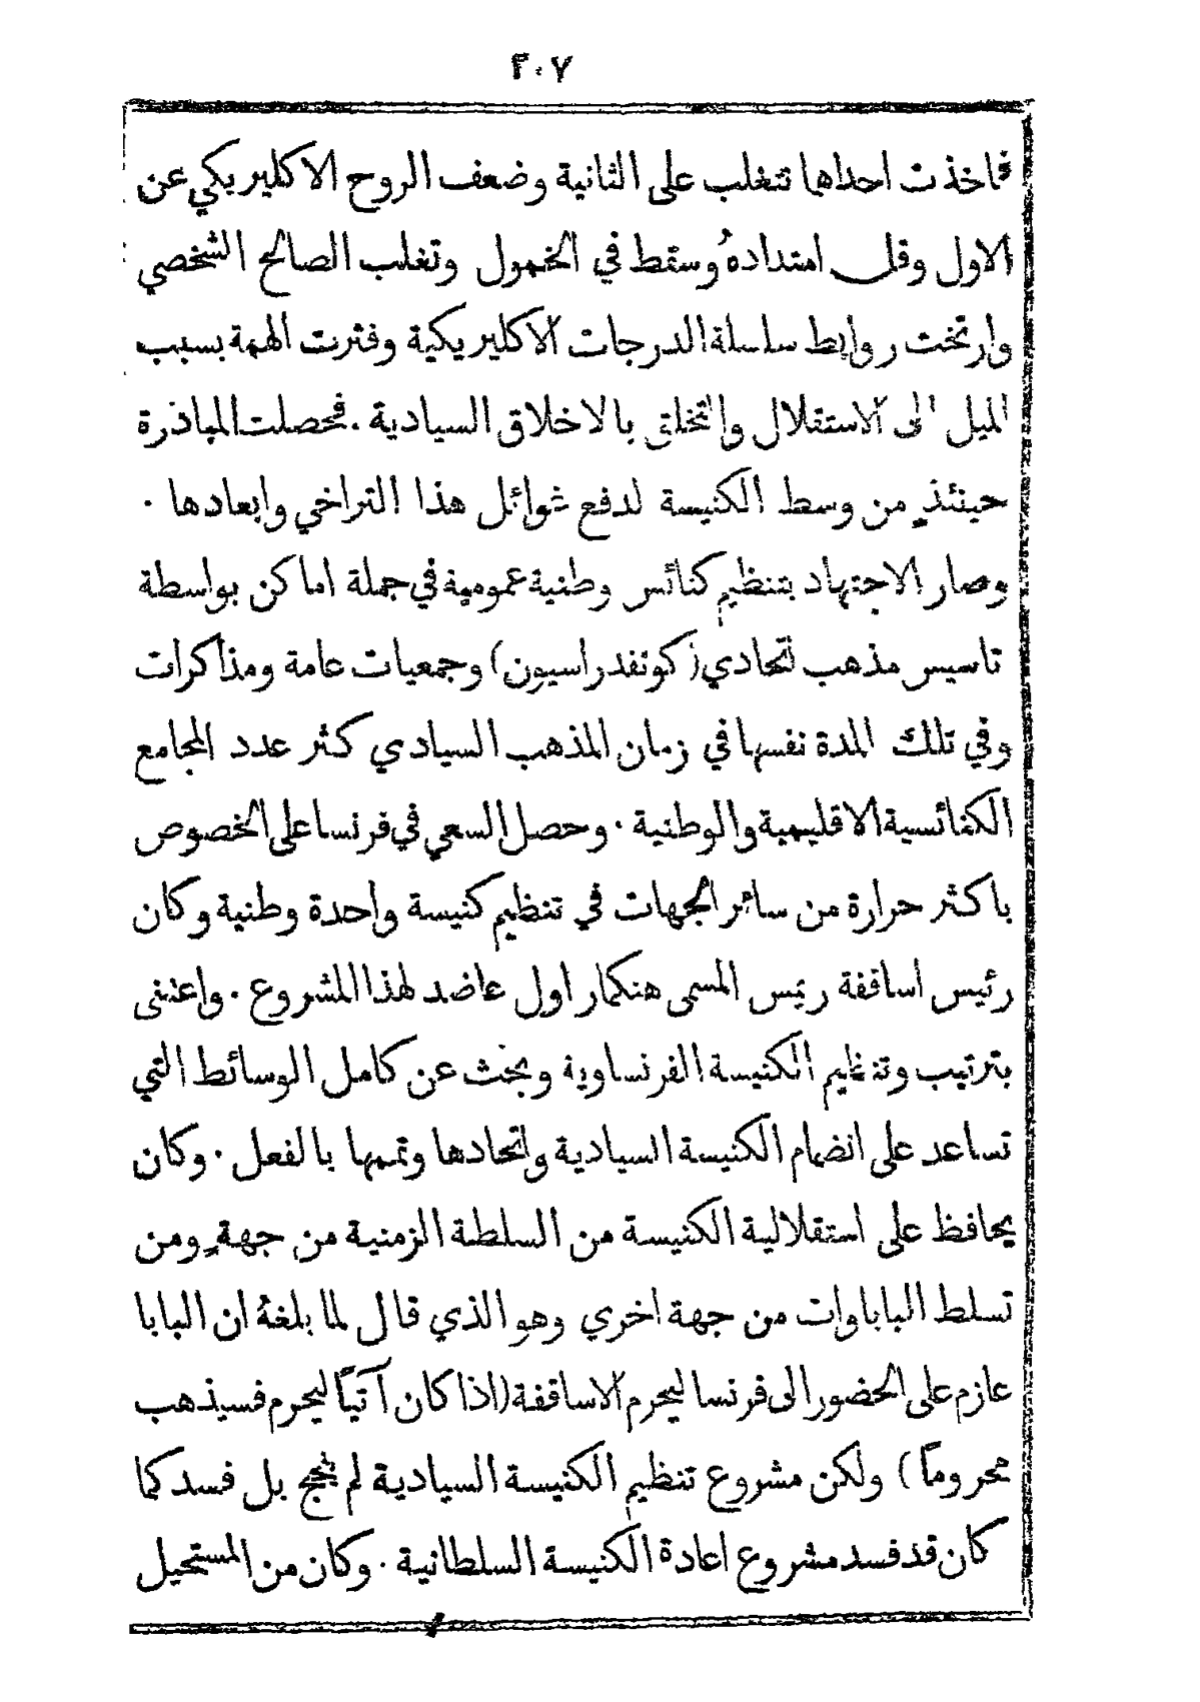 ٣٠٧
فاخذت احداها تتغلب على الثانية وضعف الروح الاكليريكي عن
الاول وقل امتدادهُ وسقط في الخمول وتغلب الصالح الشخصي
وارتخت روابط سلسلة الدرجات الاكليريكية وفترت الهمة بسبب
الميل الى الاستقلال والتخلق بالاخلاق السيادية . فحصلت المباذرة
حينئذٍ من وسط الكنيسة لدفع غوائل هذا التراخي وابعادها .
وصار الاجتهاد بتنظيم كنائس وطنية عمومية في جملة اماكن بواسطة
تاسيس مذهب اتحادي (كونفدراسيون) وجمعيات عامة ومذاكرات
وفي تلك المدة نفسها في زمان المذهب السيادي كثر عدد المجامع
الكنائسية الاقليمية والوطنية . وحصل السعي في فرنسا على الخصوص
باكثر حرارة من سائر الجهات في تنظيم كنيسة واحدة وطنية وكان
رئيس اساقفة ريمس المسمى هنكمار اول عاضد لهذا المشروع . واعتنى
بترتيب وتنظيم الكنيسة الفرنساوية وبحث عن كامل الوسائط التي
تساعد على انضمام الكنيسة السيادية واتحادها وتممها بالفعل . وكان
يحافظ على استقلالية الكنيسة من السلطة الزمنية من جهةٍ ومن
تسلط الباباوات من جهة اخري وهو الذي قال لما بلغهُ ان البابا
عازم على الحضور الى فرنسا ليحرم الاساقفة (اذا كان آتياً ليحرم فسيذهب
محروماً) ولكن مشروع تنظيم الكنيسة السيادية لم ينجح بل فسد كما
كان قد فسد مشروع اعادة الكنيسة السلطانية . وكان من المستحيل